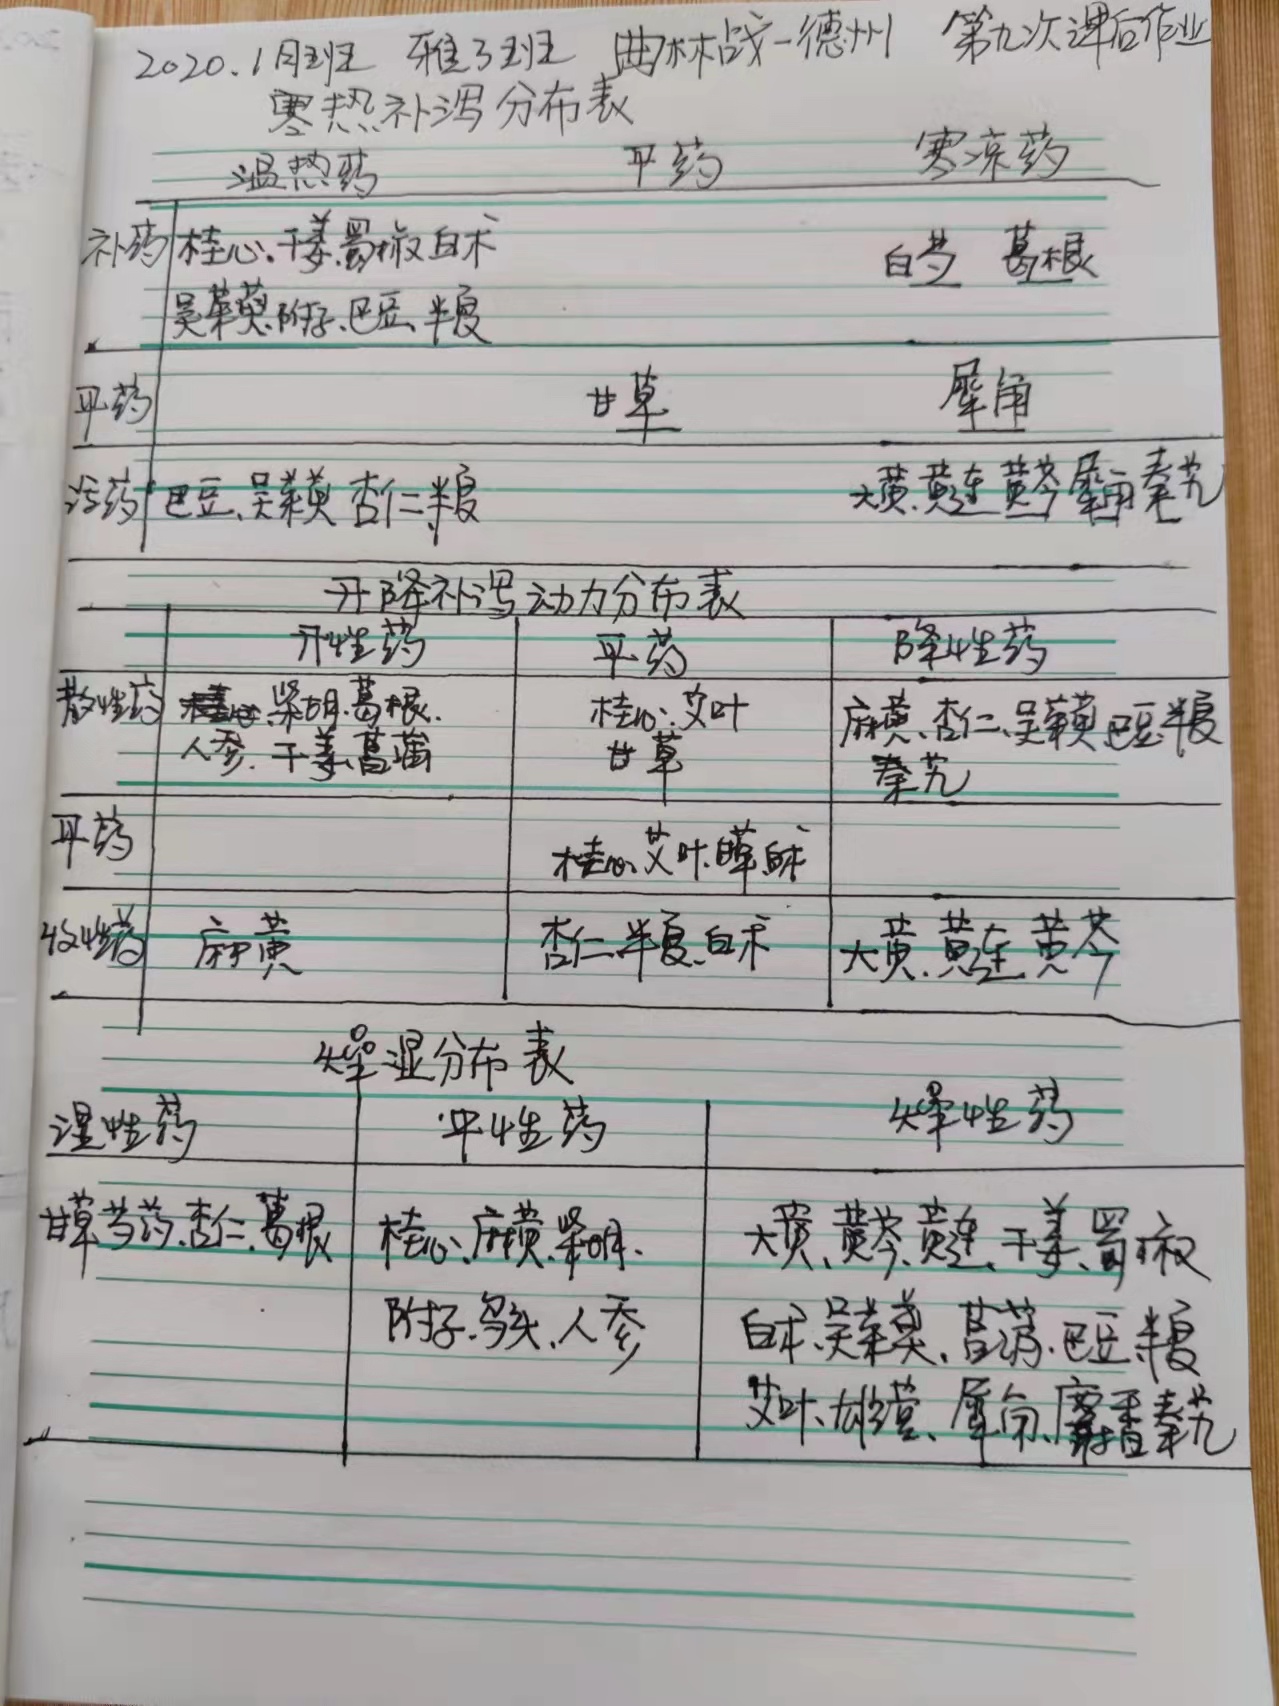 2020.1月班 雅3班 曲林战-德州 第九次课后作业
寒热补泻分布表
温热药 平药 寒凉药
补药 桂心、干姜、蜀椒 白术 白芍 葛根
吴茱萸、附子、巴豆、半夏
平药 甘草 犀角
泻药 巴豆、吴茱萸 杏仁、半夏 大黄、黄连 黄芩 犀角 秦艽
升降补泻动力分布表
升性药 平药 降性药
散性药 柴胡、葛根、 桂心、艾叶 麻黄、杏仁、吴茱萸 巴豆、半夏
人参、干姜、菖蒲 甘草 秦艽
平药 桂心、艾叶、甘草、白术
收性药 麻黄 杏仁、半夏、白术 大黄、黄连、黄芩
燥湿分布表
湿性药 平性药 燥性药
甘草 芍药、杏仁、葛根 桂心、麻黄、柴胡、 大黄、黄芩、黄连、干姜、蜀椒
附子、乌头、人参 白术、吴茱萸、菖蒲、巴豆、半夏
艾叶、雄黄、犀角、麝香 秦艽